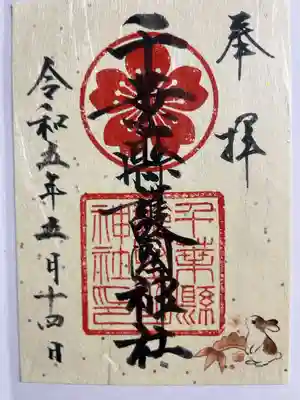 奉拝
千葉縣護國神社
千葉縣
護國
神社印
令和五年五月十四日